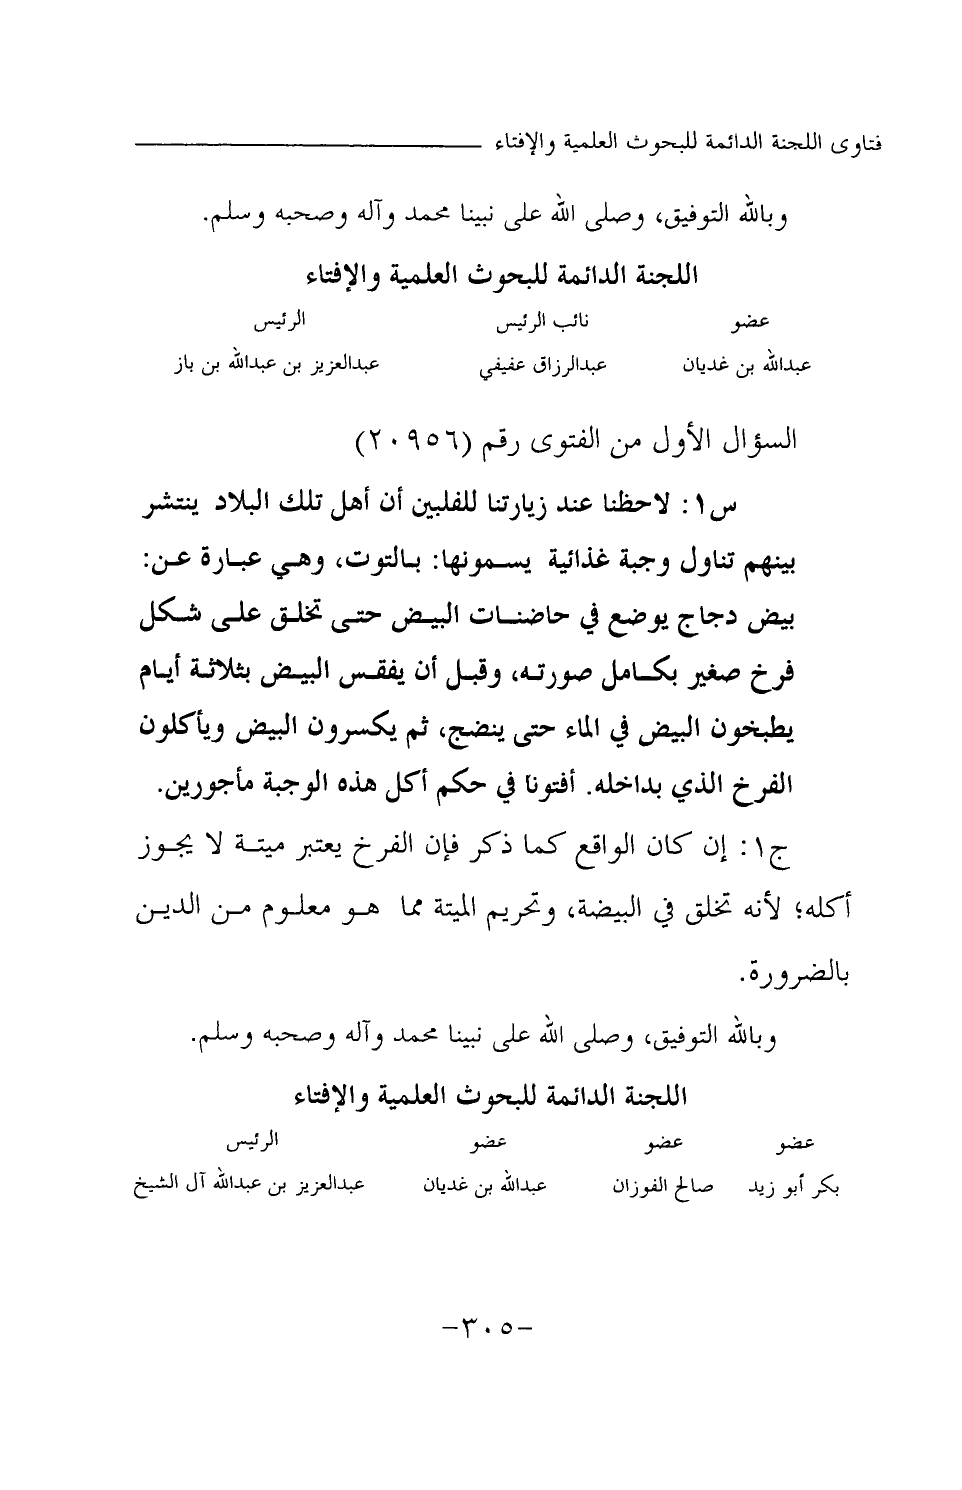 فتاوى اللجنة الدائمة للبحوث العلمية والإفتاء
وبالله التوفيق، وصلى الله على نبينا محمد وآله وصحبه وسلم.
اللجنة الدائمة للبحوث العلمية والإفتاء
عضو نائب الرئيس الرئيس
عبدالله بن غديان عبدالرزاق عفيفي عبدالعزيز بن عبدالله بن باز
السؤال الأول من الفتوى رقم (٢٠٩٥٦)
س١: لاحظنا عند زيارتنا للفلبين أن أهل تلك البلاد ينتشر
بينهم تناول وجبة غذائية يسمونها: بالتوت، وهي عبارة عن:
بيض دجاج يوضع في حاضنات البيض حتى تخلق على شكل
فرخ صغير بكامل صورته، وقبل أن يفقس البيض بثلاثة أيام
يطبخون البيض في الماء حتى ينضج، ثم يكسرون البيض ويأكلون
الفرخ الذي بداخله. أفتونا في حكم أكل هذه الوجبة مأجورين.
ج١: إن كان الواقع كما ذكر فإن الفرخ يعتبر ميتة لا يجوز
أكله؛ لأنه تخلق في البيضة، وتحريم الميتة مما هو معلوم من الدين
بالضرورة.
وبالله التوفيق، وصلى الله على نبينا محمد وآله وصحبه وسلم.
اللجنة الدائمة للبحوث العلمية والإفتاء
عضو عضو عضو الرئيس
بكر أبو زيد صالح الفوزان عبدالله بن غديان عبدالعزيز بن عبدالله آل الشيخ
-٣٠٥-